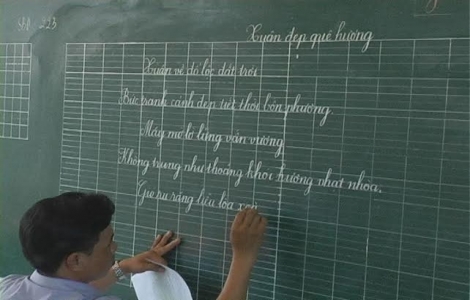 Xuân đẹp quê hương
Xuân về đó lộc đất trời
Bức tranh cảnh đẹp tiết thời bốn phương.
Mây mơ lơ lửng vấn vương
Không trung như thoảng khói hương nhạt nhòa.
liễu lòa